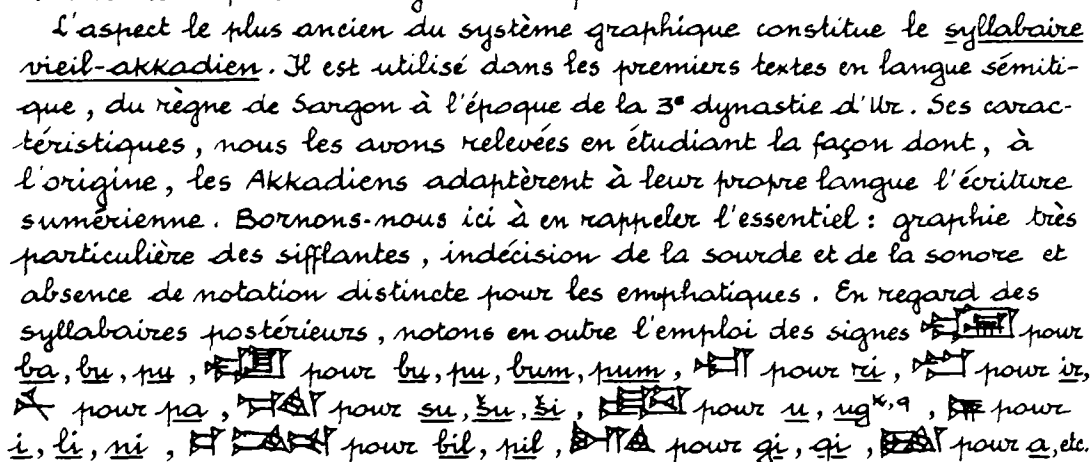 L'aspect le plus ancien du système graphique constitue le syllabaire
vieil-akkadien. Il est utilisé dans les premiers textes en langue sémiti-
que, du règne de Sargon à l'époque de la 3e dynastie d'Ur. Ses carac-
téristiques, nous les avons relevées en étudiant la façon dont, à
l'origine, les Akkadiens adaptèrent à leur propre langue l'écriture
sumérienne. Bornons-nous ici à en rappeler l'essentiel : graphie très
particulière des sifflantes, indécision de la sourde et de la sonore et
absence de notation distincte pour les emphatiques. En regard des
syllabaires postérieurs, notons en outre l'emploi des signes pour
ba, bu, pu, pour bu, pu, bum, pum, pour ri, pour ir,
pour pa, pour su, šu, ši, pour u, ugk,q, pour
i, li, ni, pour bil, pil, pour gi, qi, pour a, etc.